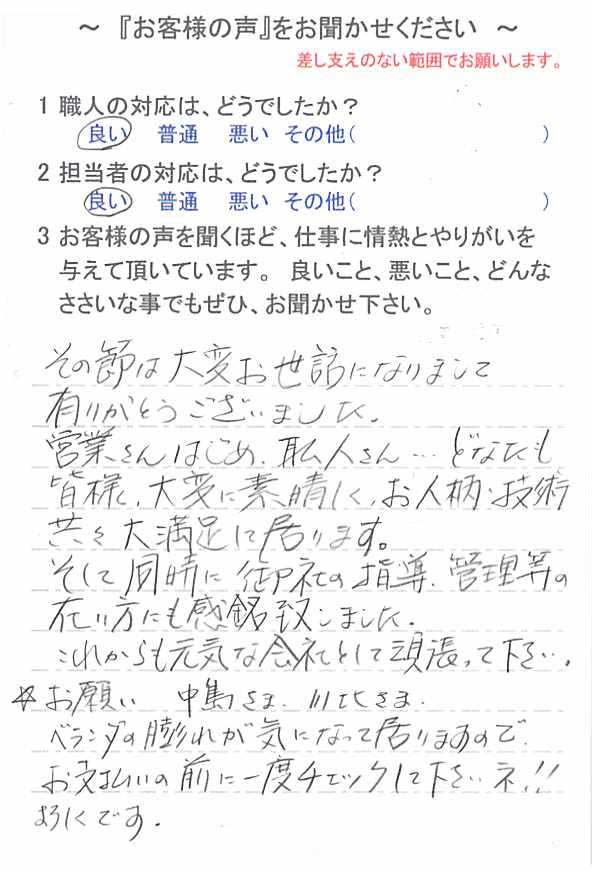 ～ 『お客様の声』をお聞かせください ～
差し支えのない範囲でお願いします。
1 職人の対応は、どうでしたか？
良い 普通 悪い その他( )
2 担当者の対応は、どうでしたか？
良い 普通 悪い その他( )
3 お客様の声を聞くほど、仕事に情熱とやりがいを
与えて頂いています。 良いこと、悪いこと、どんな
ささいな事でもぜひ、お聞かせ下さい。
その節は大変お世話になりまして
有りがとうございました。
営業さんはじめ、職人さん…どなたも
皆様、大変に素晴しく、お人柄・技術
共々大満足に居ります。
そして同時に御社の指導、管理等の
在り方にも感銘致しました。
これからも元気な会社として頑張って下さい。
☆お願い 中島さま、川比さま、
ベランダの膨れが気になって居りますので、
お支払いの前に一度チェックして下さいネ!!
よろしくです。